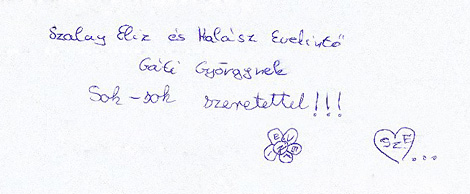 Szalay Eliz és Halász Evelintő
Gáti Györgynek
Sok-sok szeretettel!!!
SzE...